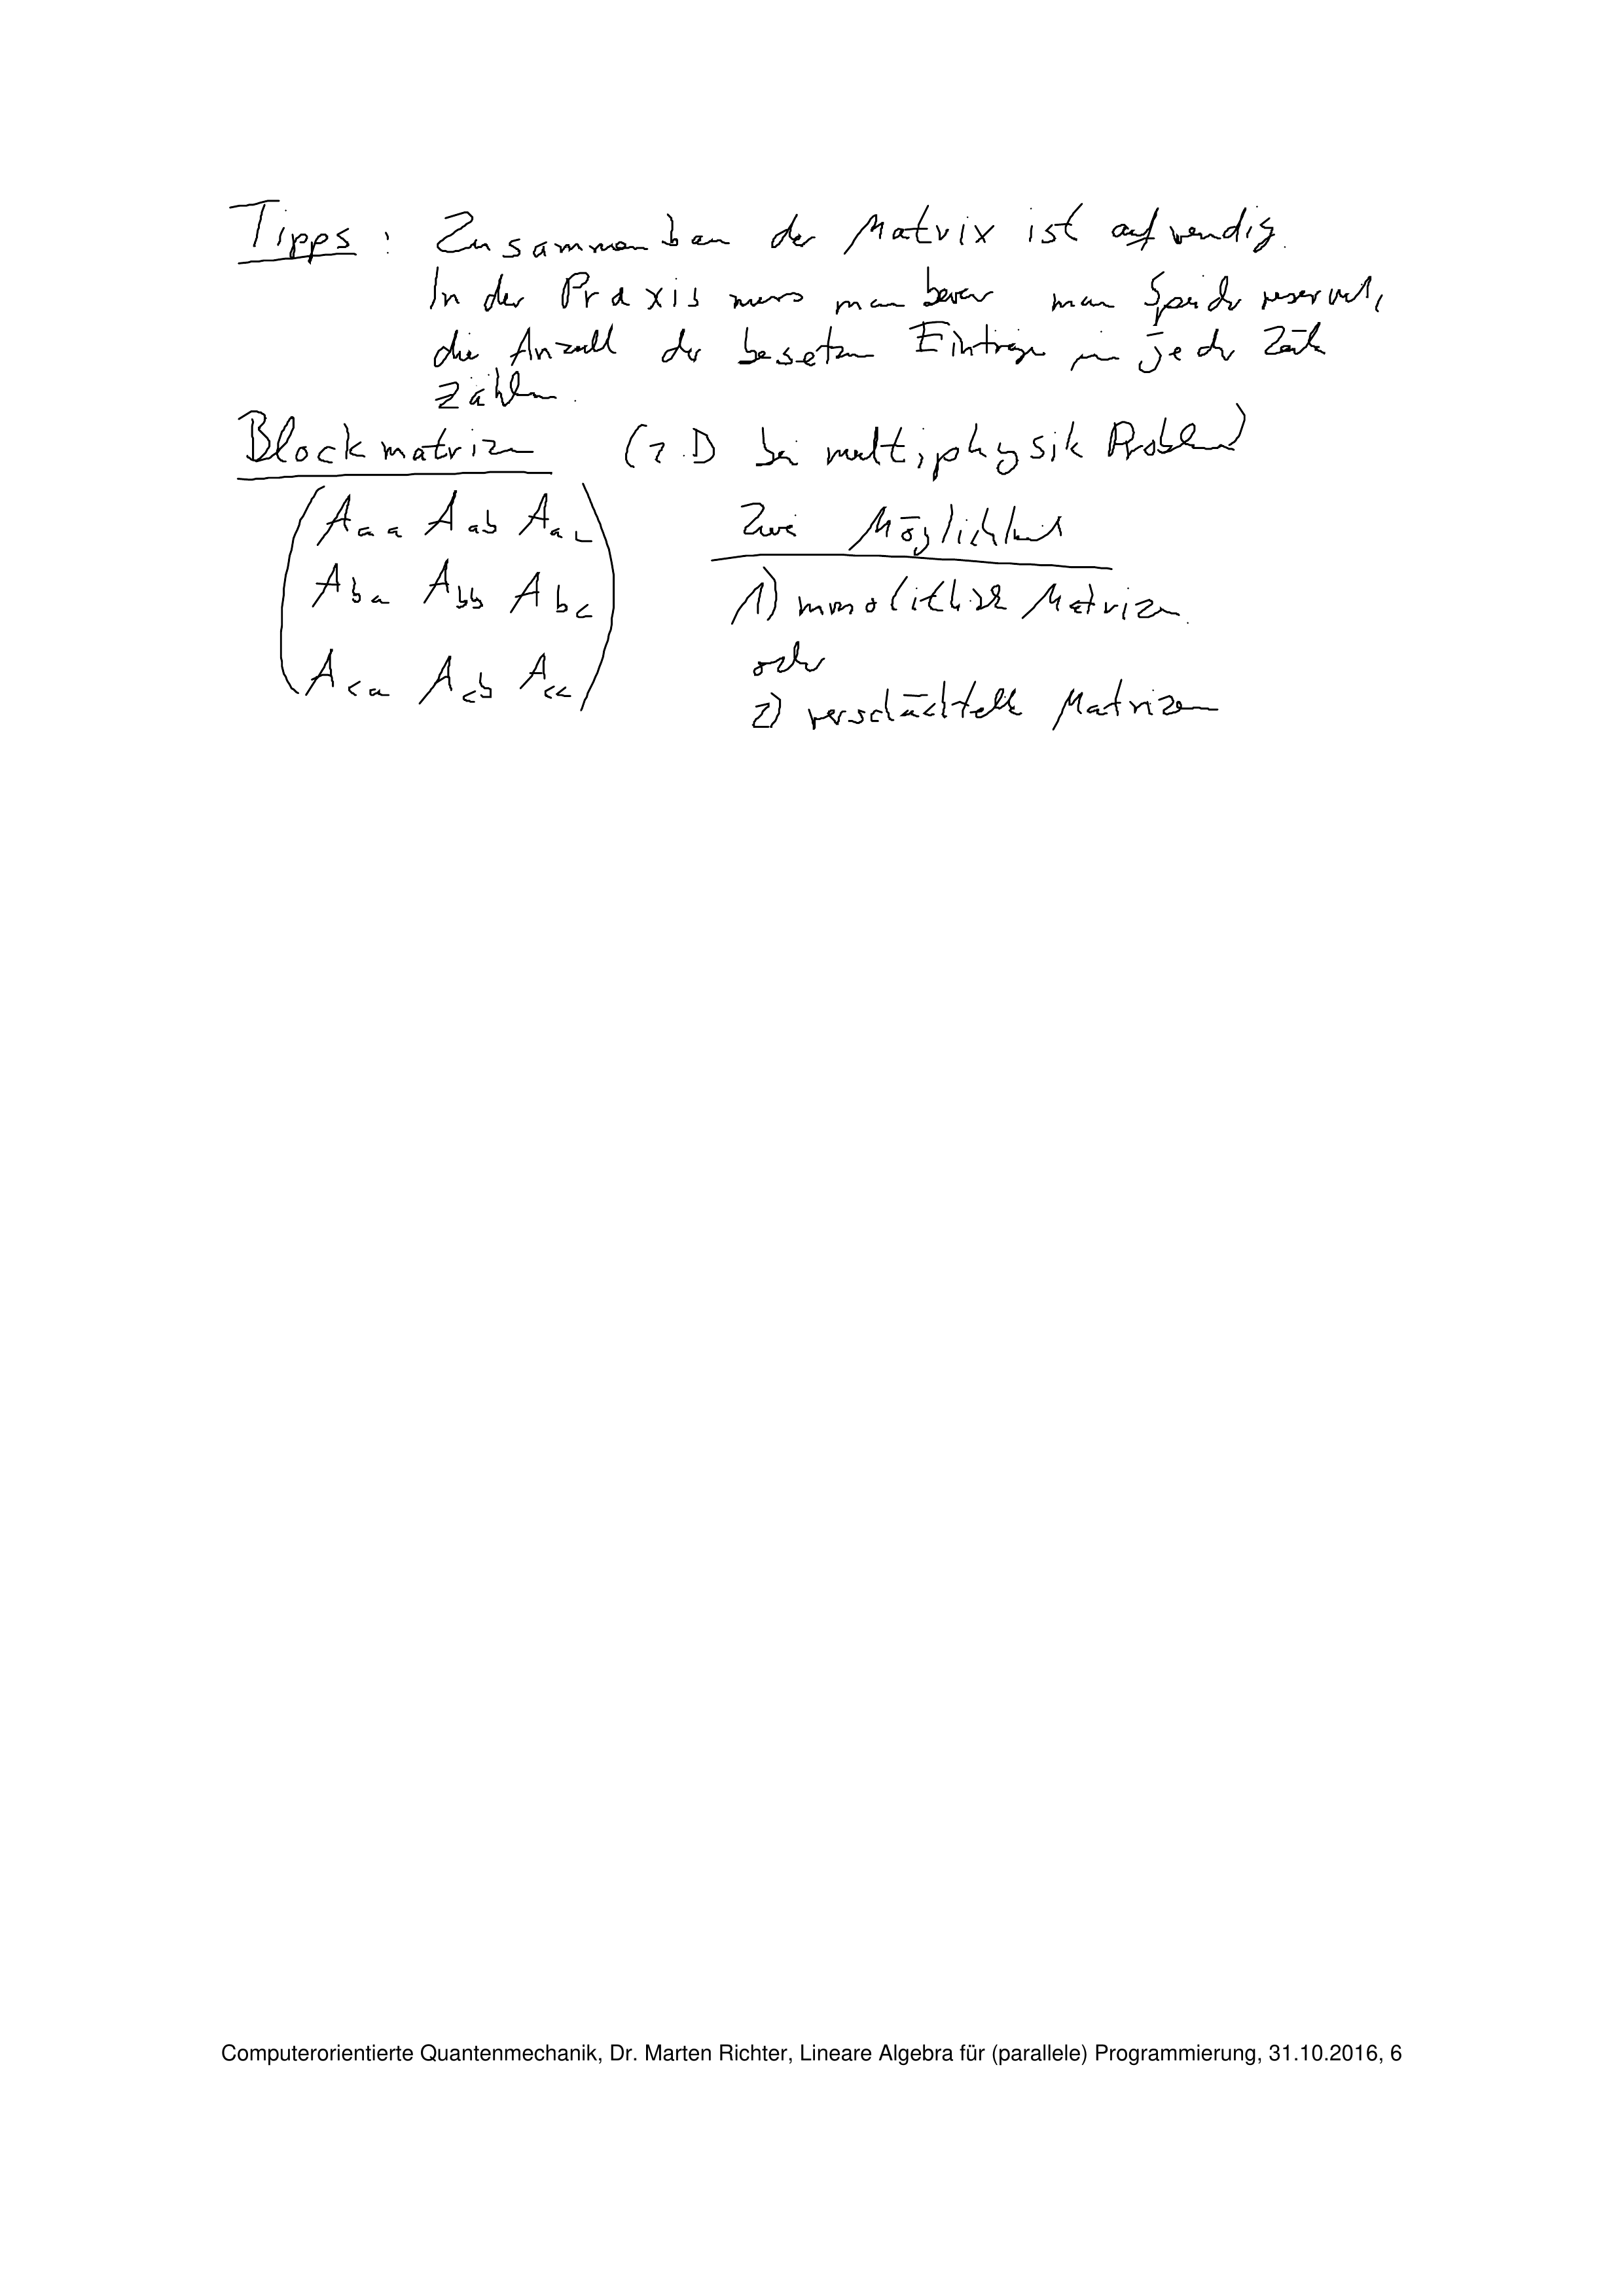 Tipps: Zusammenbau der Matrix ist aufwendig.
In der Praxis muss man bevor man Speicher reserviert,
die Anzahl der besetzten Einträge in jeder Zeile
zählen.
Blockmatrizen (z.B bei multiphysik Problemen)
Zwei Möglichkeiten
A_aa A_ab A_ac
A_ba A_bb A_bc
A_ca A_cb A_cc
1) monolithische Matrizen.
oder
2) verschachtelte Matrizen
Computerorientierte Quantenmechanik, Dr. Marten Richter, Lineare Algebra für (parallele) Programmierung, 31.10.2016, 6